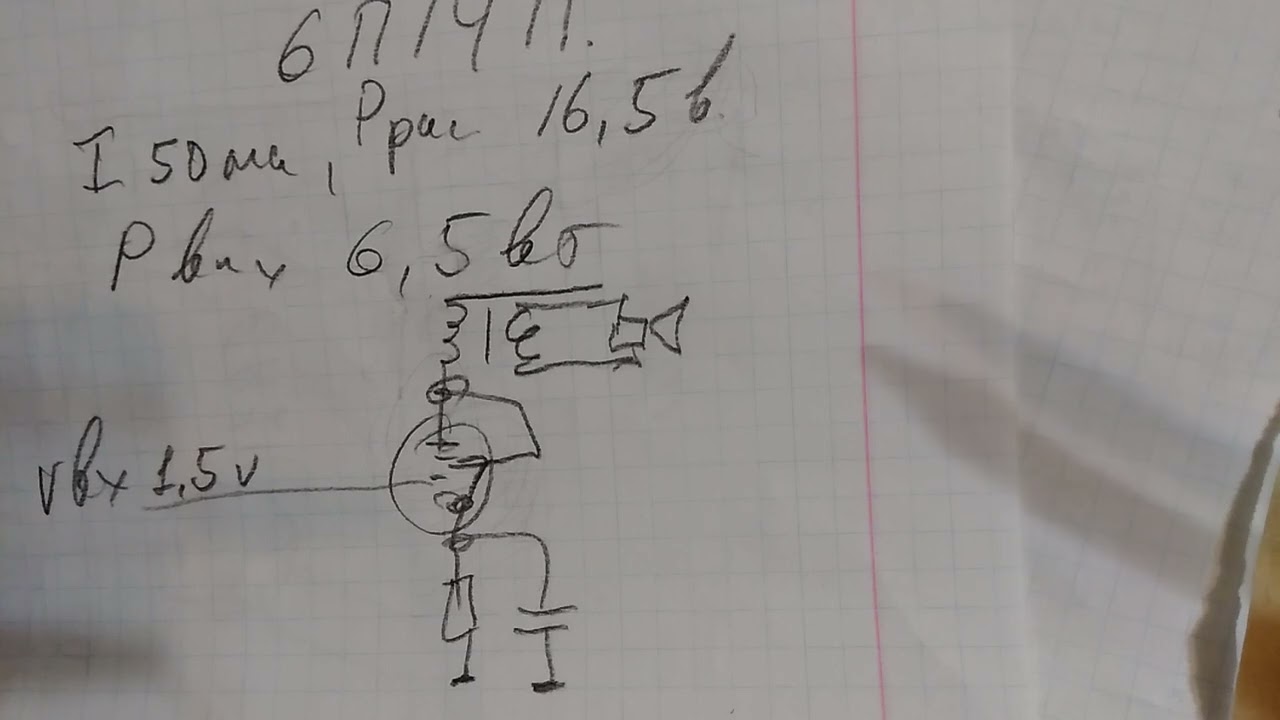 6П14П.
I 50ма, Pрас 16,5в.
P вых 6,5вт
Vвх 1,5v